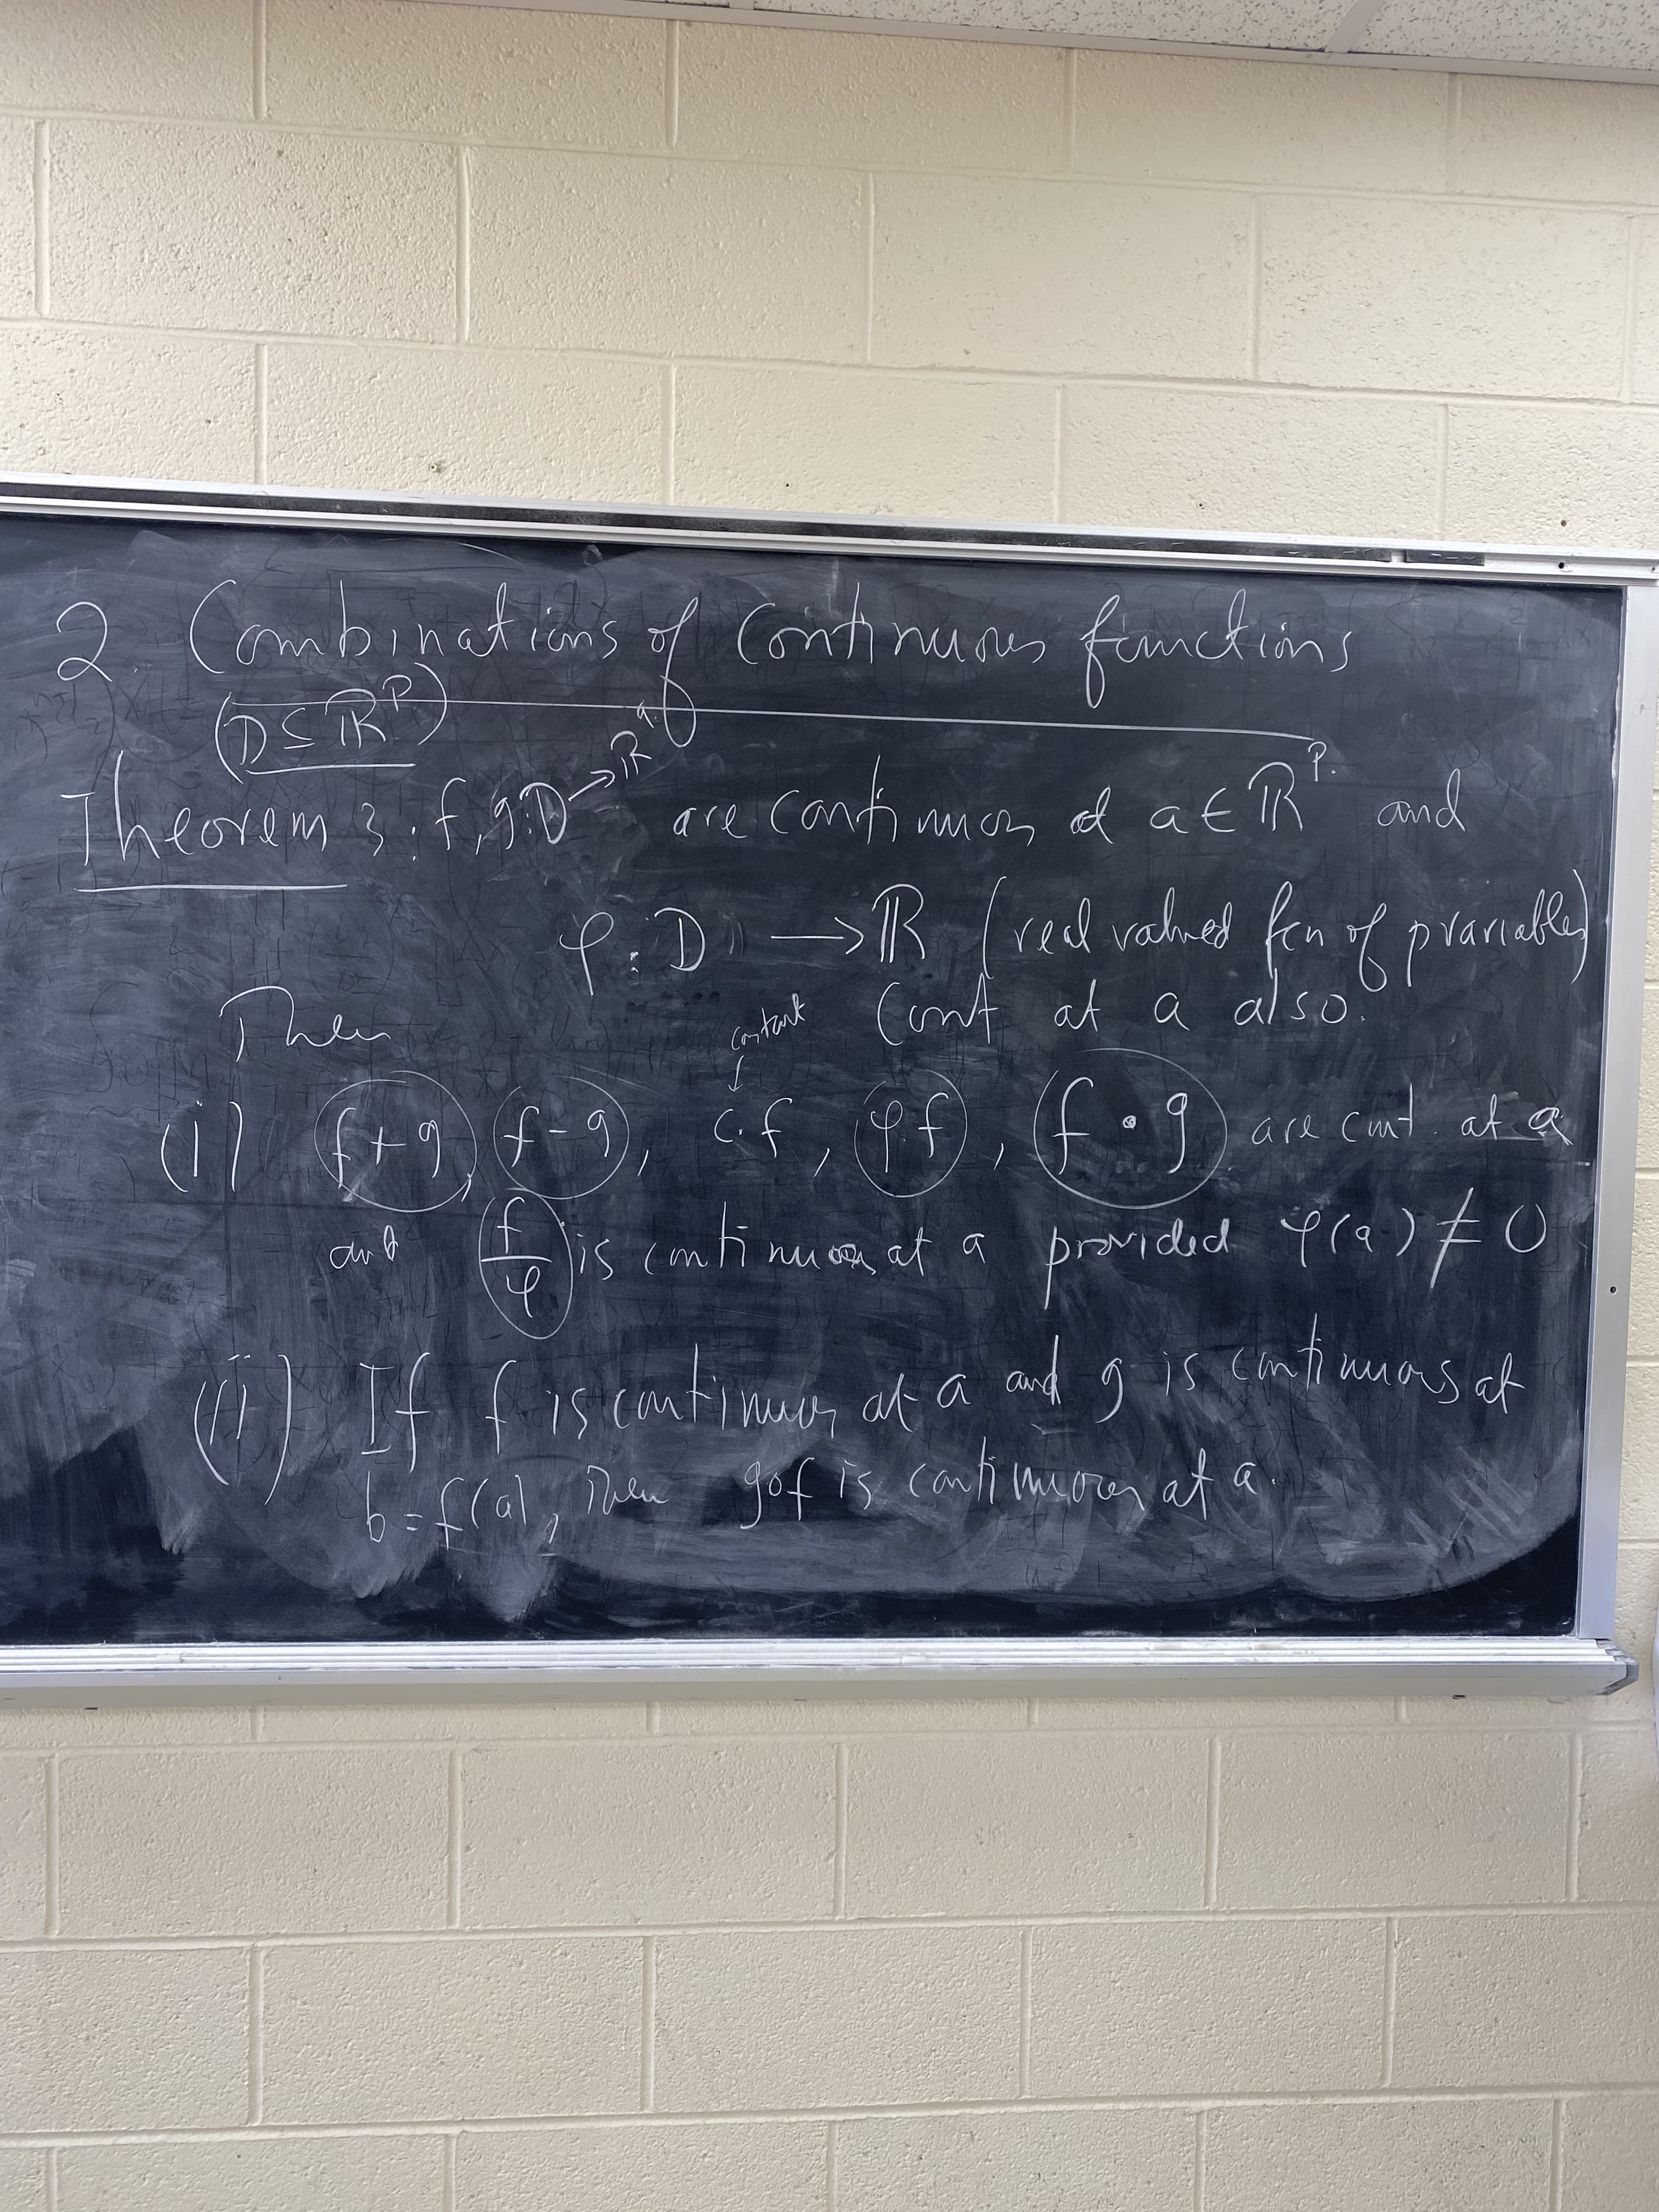 2. Combinations of continuous functions
(D ⊆ ℝᵖ)
Theorem 3: f, g: D → ℝ^q are continuous at a ∈ ℝᵖ and
φ: D → ℝ (real valued fcn of p variables)
Then cont at a also.
constant
↓
(i) f+g, f-g, c·f, φf, f • g are cont. at a
and f/φ is continuous at a provided φ(a) ≠ 0
(ii) If f is continuous at a and g is continuous at
b = f(a), then g∘f is continuous at a.